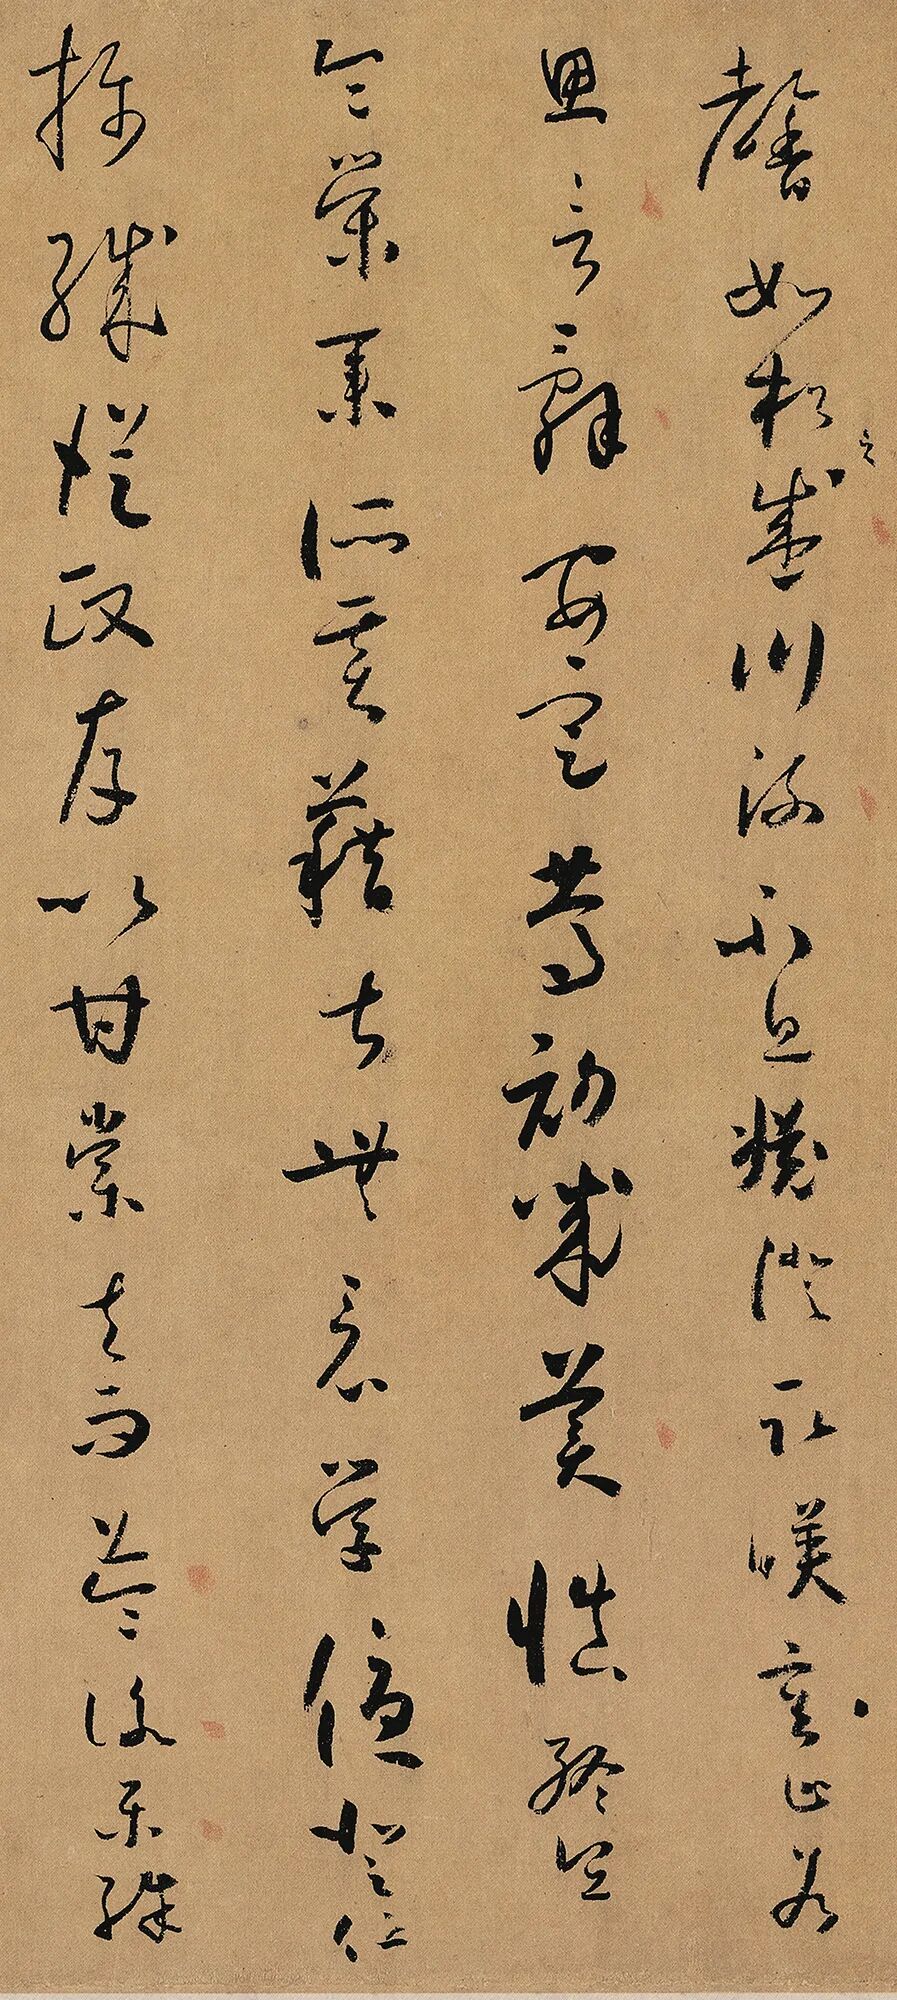 馨如松之盛川流不息淵澄取映容止若
思言辭安定篤初誠美慎終宜
令榮業所基藉甚無竟學優登仕
攝職從政存以甘棠去而益詠樂殊